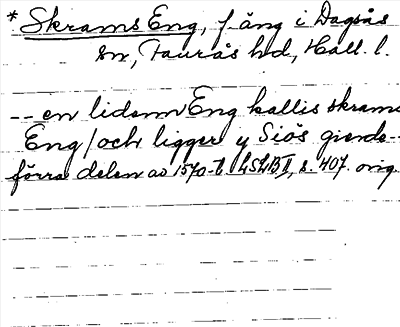 * Skrams Eng, f. äng i Dagsås
sn, Faurås hd, Hall. l.
-- en lidenn Eng kallis skrams
Eng / och ligger y Siös gierde--
förra delen av 1570-t. LSLB II, s. 407. orig.